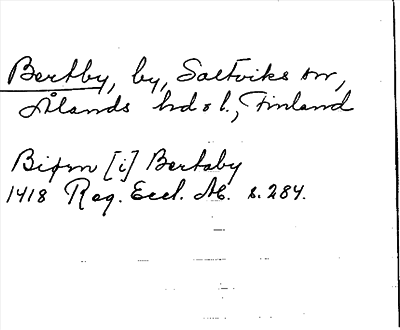 Bertby, by, Saltviks sn,
Ålands hd o l., Finland
Biørn [i] Bertaby
1418 Reg. Eccl. Ab. s. 284.